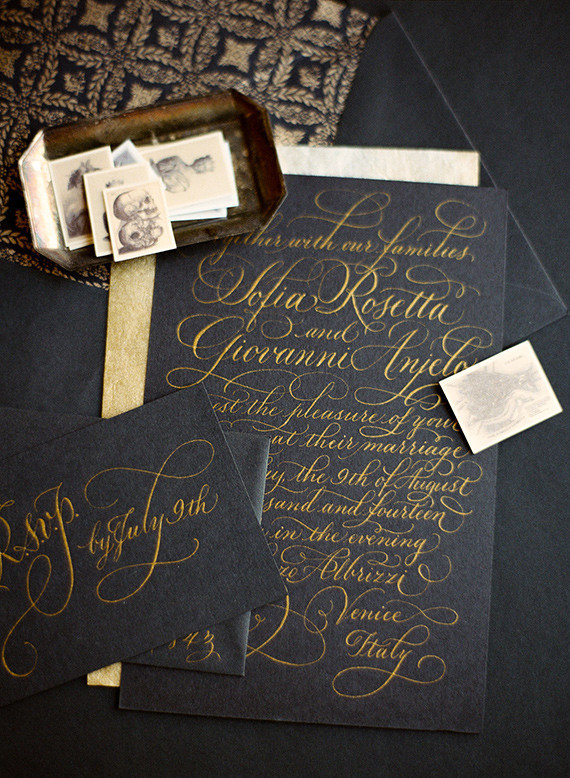 with our families
Sofia Rosetta
and
Giovanni Anjelo
est the pleasure of your
at their marriage
the 9th of August
sand and fourteen
in the evening
Albrizzi
Venice
Italy
R.S.V.P.
by July 9th